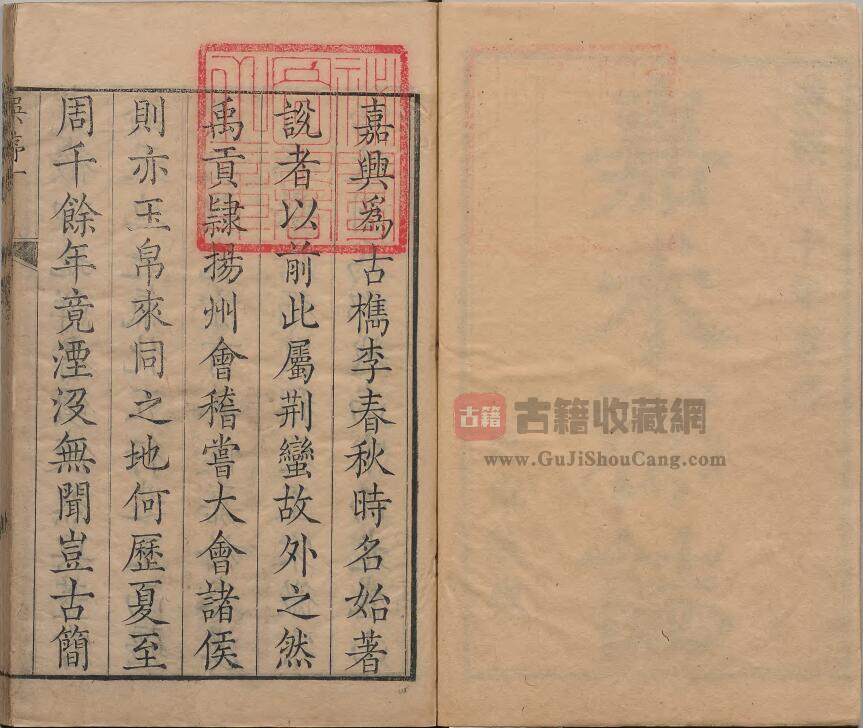 嘉興爲古檇李春秋時名始著
說者以前此屬荆蠻故外之然
禹貢隷揚州會稽嘗大會諸侯
則亦玉帛來同之地何歷夏至
周千餘年竟湮沒無聞豈古簡
吳序一
古籍
古籍收藏網
www.GuJiShouCang.com